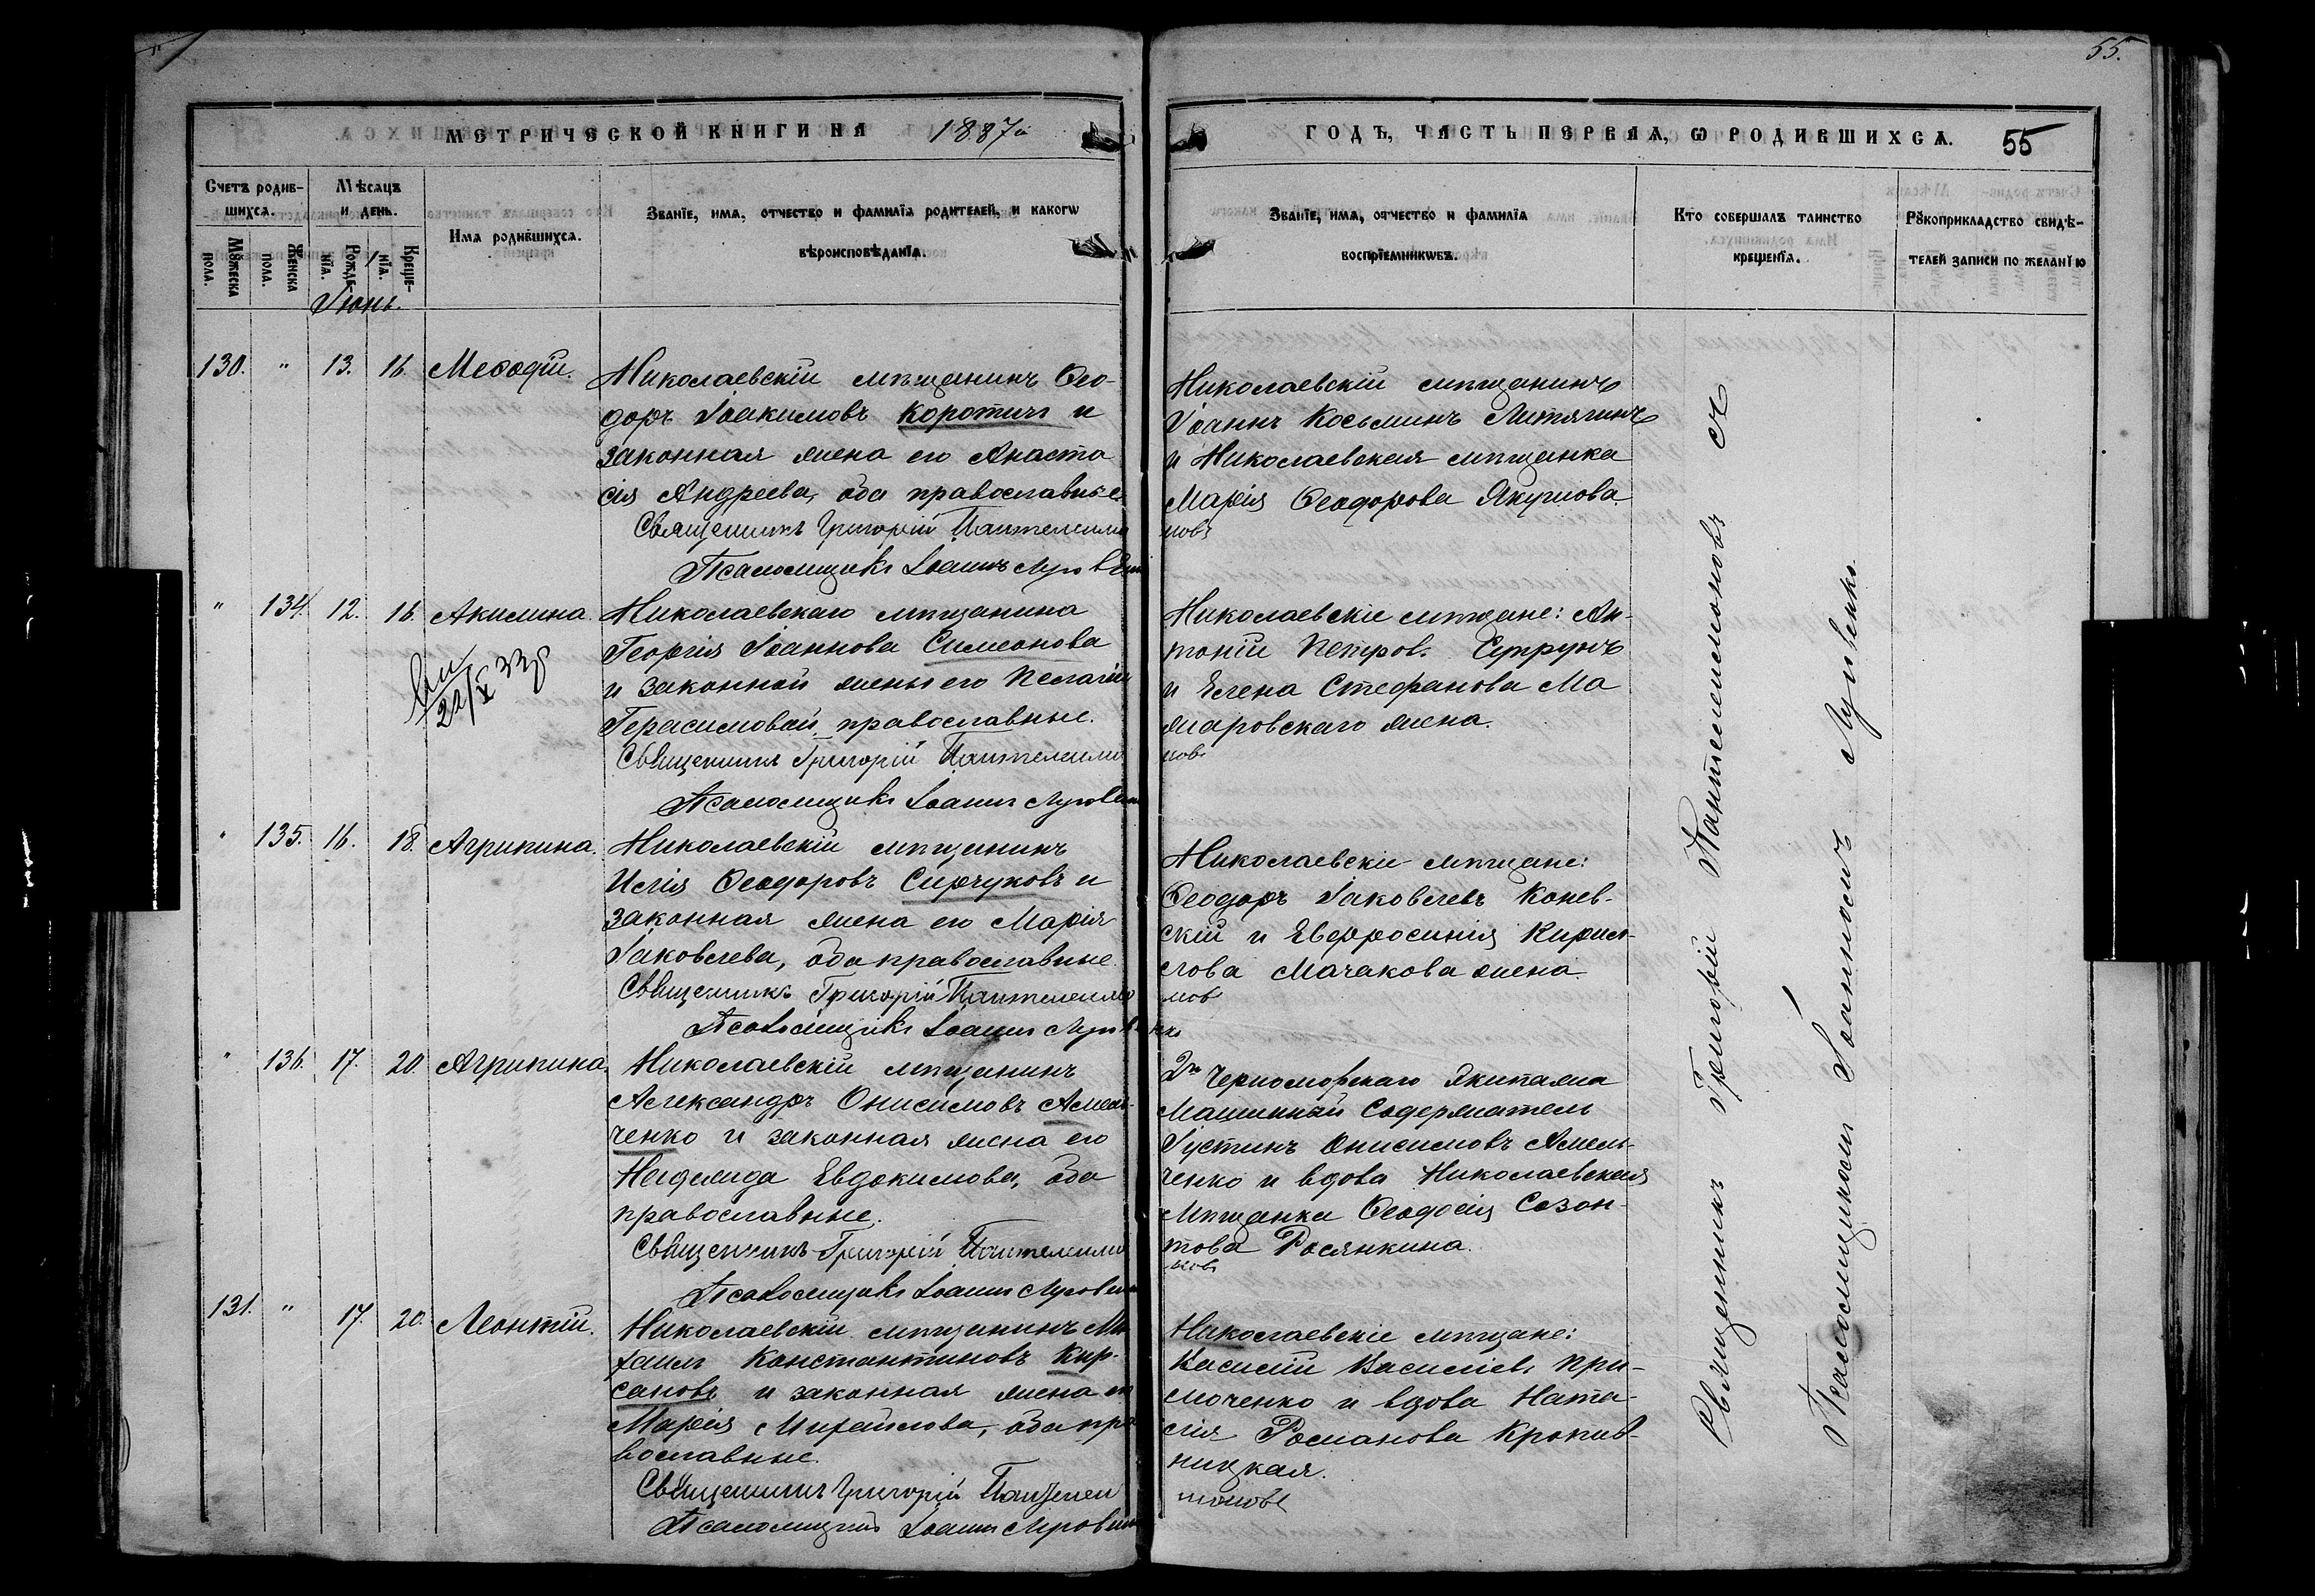 55.
МЕТРИЧЕСКОЙ КНИГИ НА 1887й
ГОДЪ, ЧАСТЬ ПЕРВАЯ, Ѡ РОДИВШИХСѦ. 55
Счетъ родив-
шихся.
Мѹжеска пола.
Женска пола.
Мѣсяцъ
и день.
Рожде-
нїя.
Креще-
нїя.
Имѧ родившихсѧ.
Званїе, имѧ, отчество и фамилїѧ родителей, и какогѡ
вѣроисповѣданїѧ.
Званїе, имѧ, отчество и фамилїѧ
воспрїемникѡвъ.
Кто совершалъ таинство
крещенїѧ.
Рѹкоприкладство свидѣ-
телей записи по желанїю
Іюнь.
130. " 13. 16. Меѳодій.
Николаевскій мѣщанинъ Ѳео-
доръ Іоакимовъ Коротичъ и
законная жена его Анаста
сія Андреева, оба православные
Священникъ Григорій Пантелеимо
новъ
Псаломщикъ Іоаннъ Луговенко
Николаевскій мѣщанинъ
Іоаннъ Косьминъ Литягинъ
и Николаевская мѣщанка
Марія Ѳеодорова Якунова
" 134. 12. 16. Акилина.
22/X 33
Николаевскаго мѣщанина
Георгія Іоаннова Симеонова
и законной жены его Пелагіи
Герасимовой, православные.
Священникъ Григорій Пантелеимо
новъ
Псаломщикъ Іоаннъ Луговенко
Николаевскіе мѣщане: Ан-
тоній Петровъ Супрунъ
и Елена Стефанова Ма
жаровскаго жена.
" 135. 16. 18. Агрипина.
Николаевскій мѣщанинъ
Илія Ѳеодоровъ Сирчуковъ и
законная жена его Марія
Іаковлева, оба православные
Священникъ Григорій Пантелеимо
новъ
Псаломщикъ Іоаннъ Луговенко
Николаевскіе мѣщане:
Ѳеодоръ Іаковлевъ Конев-
скій и Евфросинія Кирил-
лова Мачакова жена.
" 136. 17. 20. Агрипина.
Николаевскій мѣщанинъ
Александръ Онисимовъ Амель-
ченко и законная жена его
Надежда Евдокимова, оба
православные.
Священникъ Григорій Пантелеимо
новъ
Псаломщикъ Іоаннъ Луговенко
2го Черноморскаго Экипажа
Машинный Содержатель
Іустинъ Онисимовъ Амель-
ченко и вдова Николаевская
Мѣщанка Ѳеодосія Созон-
това Росянкина.
131. " 17. 20. Леонтій.
Николаевскій мѣщанинъ Ми
хаилъ Константиновъ Кир-
сановъ и законная жена его
Марія Михайлова, оба пра
вославные.
Священникъ Григорій Пантелеи
моновъ
Псаломщикъ Іоаннъ Луговенко
Николаевскіе мѣщане:
Василій Василіевъ При-
моченко и вдова Ната-
лія Романова Кропив-
ницкая.
Священникъ Григорій Пантелеимоновъ съ
Псаломщикомъ Іоанномъ Луговенко